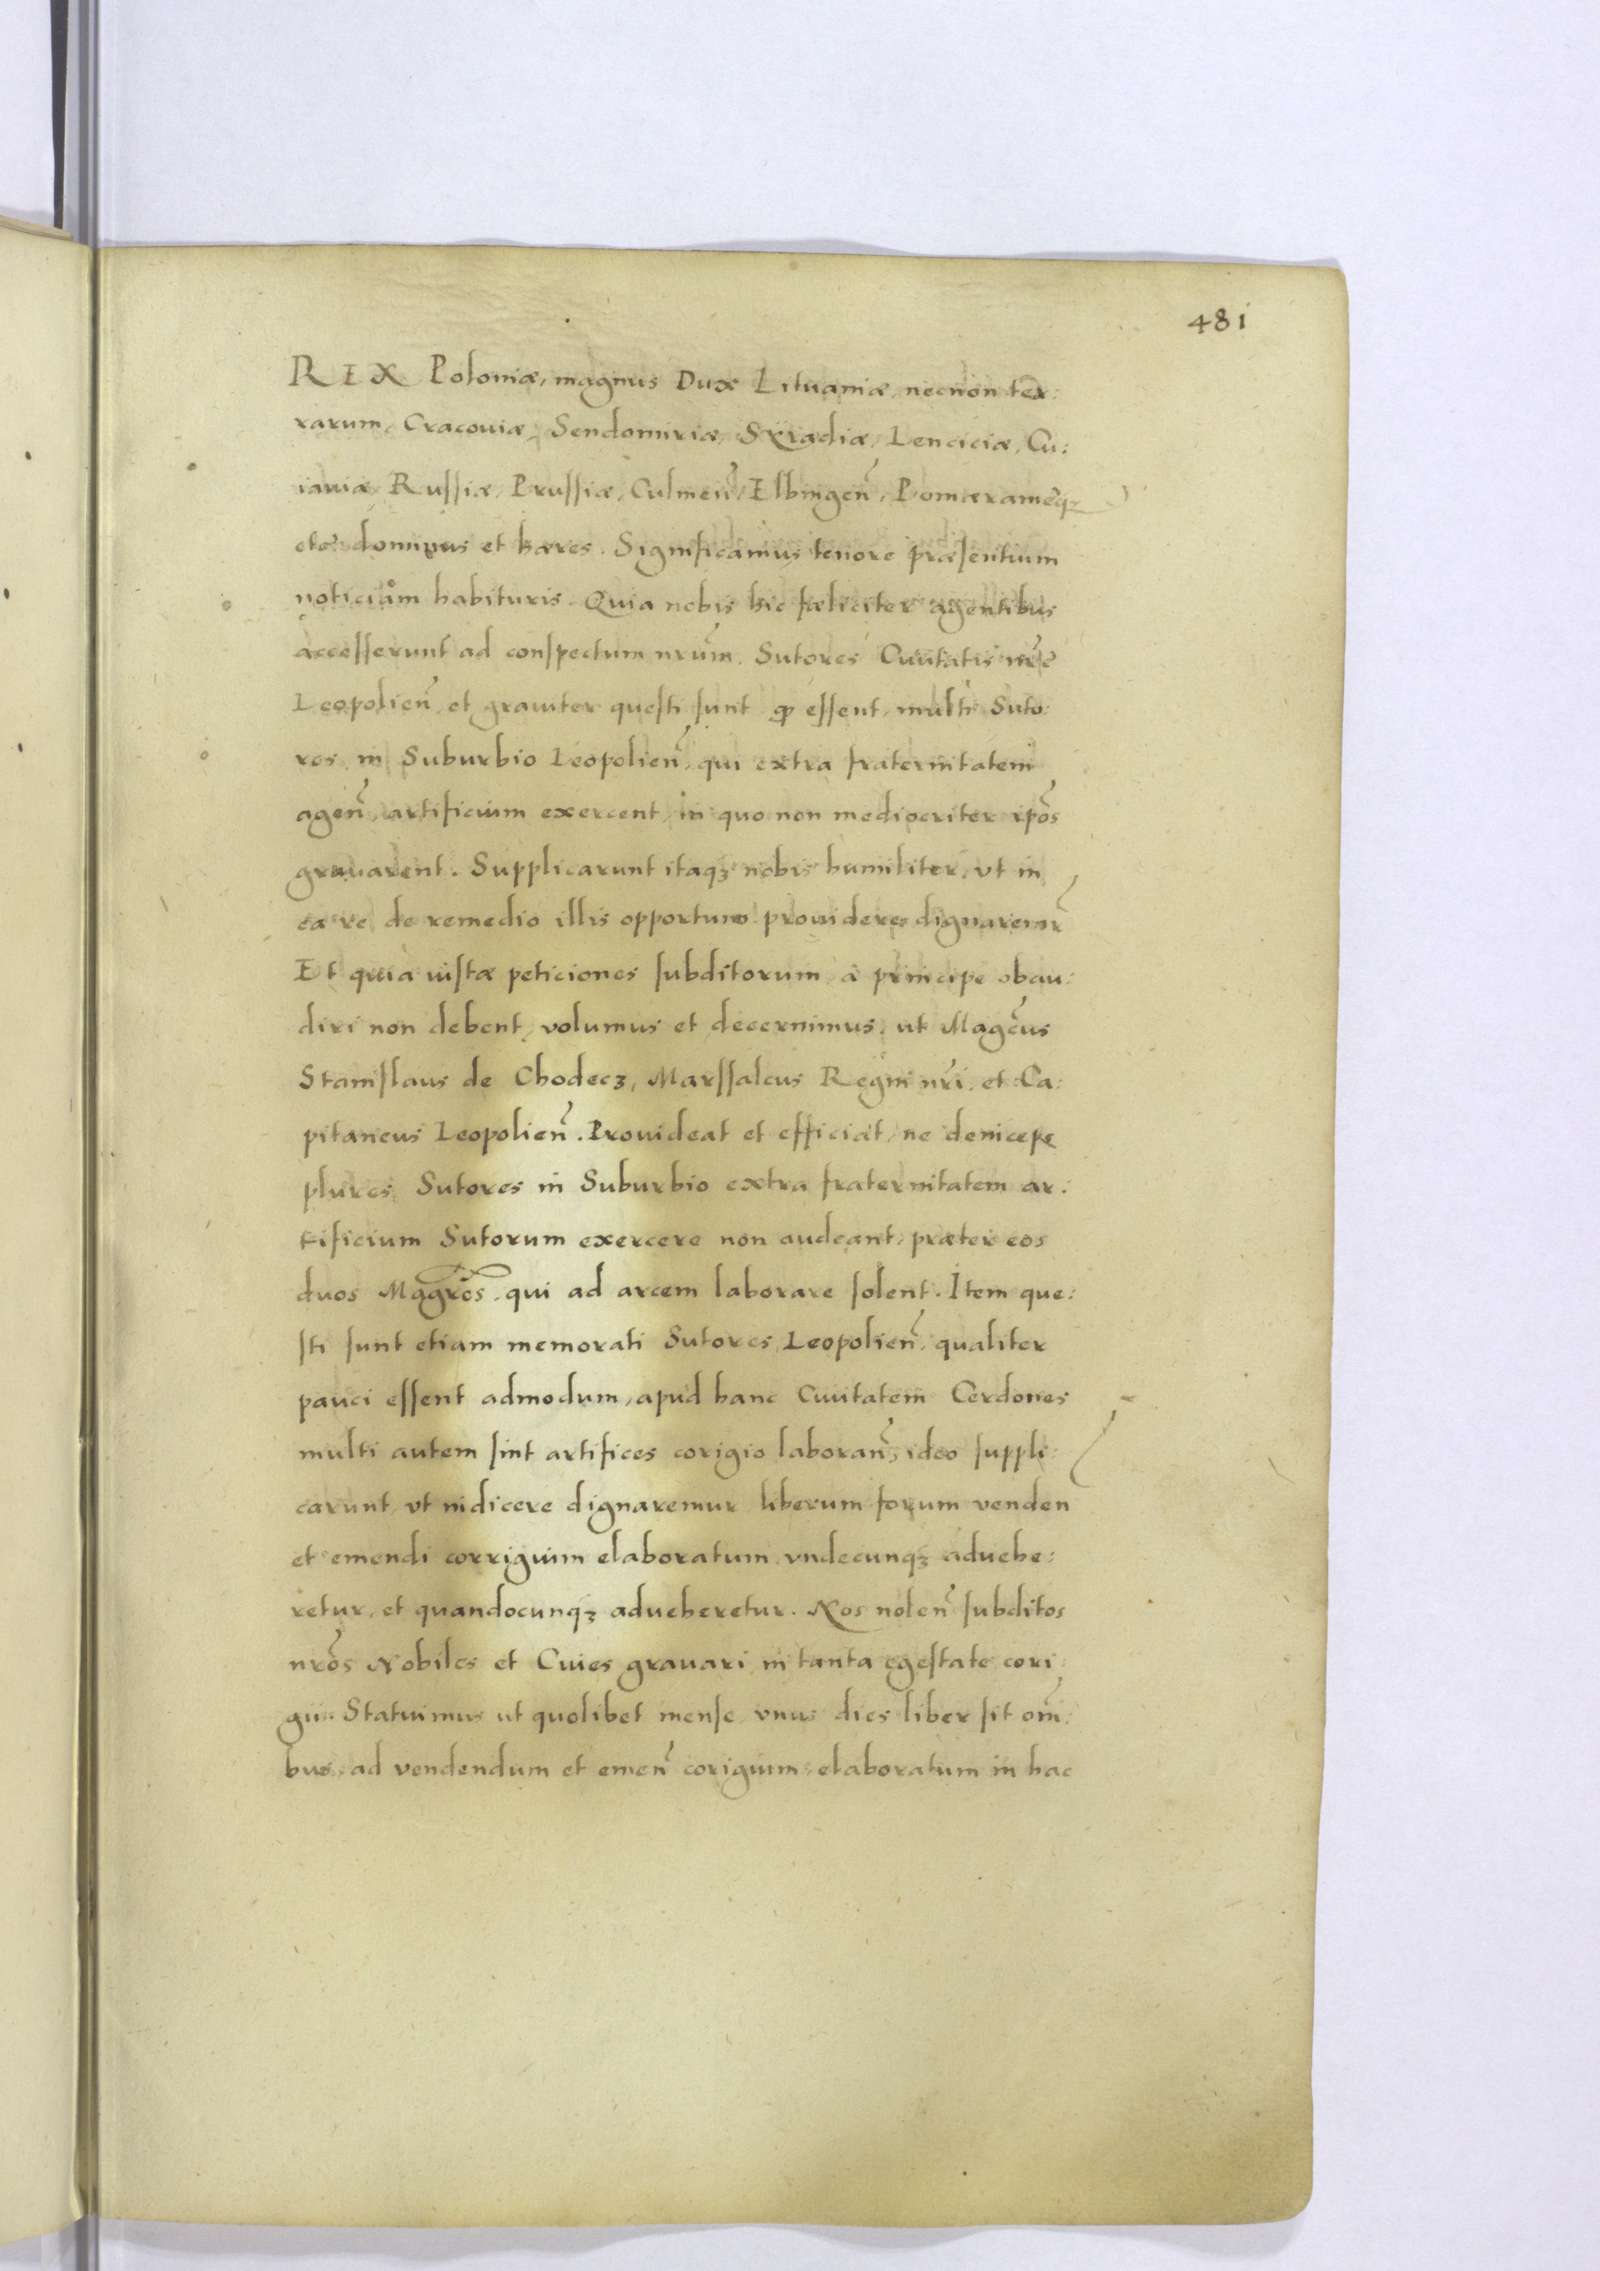 481
REX Poloniæ, magnus Dux Lituaniæ, necnon ter:
rarum, Cracouiæ, Sendomiriæ, Syradiæ, Lenciciæ, Cu:
iauiæ, Russiæ, Prussiæ, Culmen̄, Elbingen̄, Pomæraniæqꝫ
etc. dominus et hæres. Significamus tenore præsentium
noticiam habituris. Quia nobis hic fæliciter agentibus
accesserunt ad conspectum nr̄um. Sutores Ciuitatis nr̄e
Leopolien̄, et grauiter questi sunt ꝙ essent, multi Suto:
res, in Suburbio Leopolien̄, qui extra fraternitatem
agen̄, artificium exercent, in quo non mediocriter ip̄os
grauarent. Supplicarunt itaqꝫ nobis humiliter, vt in
ea re de remedio illis opportuno prouidere dignaremr̄
Et quia iustæ peticiones subditorum à principe obau:
diri non debent, volumus et decernimus, ut Magc̄us
Stanislaus de Chodecz, Marssalcus Regni nr̄i, et Ca:
pitaneus Leopolien̄. Prouideat et efficiat, ne deincepe
plures Sutores in Suburbio extra fraternitatem ar:
tificium Sutorum exercere non audeant, præter eos
duos Magr̄os, qui ad arcem laborare solent. Item que:
sti sunt etiam memorati Sutores Leopolien̄, qualiter
pauci essent admodum, apud hanc Ciuitatem Cerdones
multi autem sint artifices corigio laboran̄, ideo suppli:
carunt, vt indicere dignaremur liberum forum venden
et emendi corrigium elaboratum, vndecunqꝫ aduehe:
retur, et quandocunqꝫ adueheretur. Nos nolen̄ subditos
nr̄os Nobiles et Ciues grauari in tanta egestate cori:
gii. Statuimus ut quolibet mense, vnus dies liber sit om̄:
bus, ad vendendum et emen̄ corigium elaboratum in hac